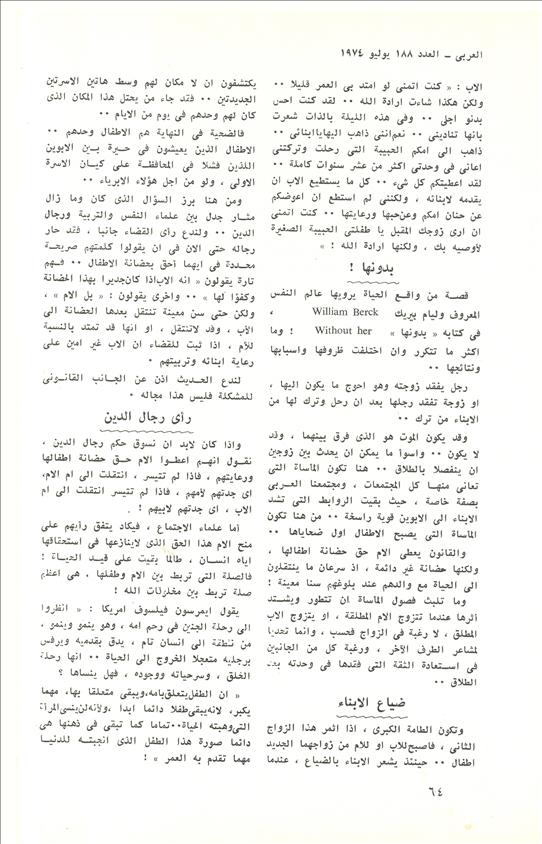 العربى ـ العدد ١٨٨ يوليو ١٩٧٤
الاب : « كنت اتمنى لو امتد بى العمر قليلا ٠٠
ولكن هكذا شاءت ارادة الله ٠٠ لقد كنت احس
بدنو اجلى ٠٠ وفى هذه الليلة بالذات شعرت
بانها تنادينى ٠٠ نعم اننى ذاهب اليها يا ابنائى ٠٠
ذاهب الى امكم الحبيبة التى رحلت وتركتنى
اعانى فى وحدتى اكثر من عشر سنوات كاملة ٠٠
لقد اعطيتكم كل شىء ٠٠ كل ما يستطيع الاب ان
يقدمه لابنائه ، ولكننى لم استطع ان اعوضكم
عن حنان امكم وعن حبها ورعايتها ٠٠ كنت اتمنى
ان ارى زوجك المقبل يا طفلتى الحبيبة الصغيرة
لأوصيه بك ، ولكنها ارادة الله ! »
بدونها !
قصة من واقع الحياة يرويها عالم النفس
المعروف وليام بيريك William Berck ،
فى كتابه « بدونها » Without her ! وما
اكثر ما تتكرر وان اختلفت ظروفها واسبابها
ونتائجها ٠٠
رجل يفقد زوجته وهو احوج ما يكون اليها ،
او زوجة تفقد رجلها بعد ان رحل وترك لها من
الابناء من ترك ٠٠
وقد يكون الموت هو الذى فرق بينهما ، وقد
لا يكون ٠٠ واسوأ ما يمكن ان يحدث بين زوجين
ان ينفصلا بالطلاق ٠٠ هنا تكون المأساة التى
تعانى منها كل المجتمعات ، ومجتمعنا العربى
بصفة خاصة ، حيث بقيت الروابط التى تشد
الابناء الى الابوين قوية راسخة ٠٠ من هنا تكون
المأساة التى يصبح الاطفال اول ضحاياها ٠٠
والقانون يعطى الام حق حضانة اطفالها ،
ولكنها حضانة غير دائمة ، اذ سرعان ما ينتقلون
الى الحياة مع والدهم عند بلوغهم سنا معينة !
وما تلبث فصول المأساة ان تتطور ويشتد
أثرها عندما تتزوج الام المطلقة ، او يتزوج الاب
المطلق ، لا رغبة فى الزواج فحسب ، وانما تحديا
لمشاعر الطرف الآخر ، ورغبة كل من الجانبين
فى استعادة الثقة التى فقدها فى وحدته بعد
الطلاق ٠٠
ضياع الابناء
وتكون الطامة الكبرى ، اذا اثمر هذا الزواج
الثانى ، فاصبح للاب او للام من زواجهما الجديد
اطفال ٠٠ حينئذ يشعر الابناء بالضياع ، عندما
يكتشفون ان لا مكان لهم وسط هاتين الاسرتين
الجديدتين ٠٠ فقد جاء من يحتل هذا المكان الذى
كان لهم وحدهم فى يوم من الايام ٠٠
فالضحية فى النهاية هم الاطفال وحدهم ٠٠
الاطفال الذين يعيشون فى حيرة بين الابوين
اللذين فشلا فى المحافظة على كيان الاسرة
الاولى ، ولو من اجل هؤلاء الابرياء ٠٠
ومن هنا برز السؤال الذى كان وما زال
مثار جدل بين علماء النفس والتربية ورجال
الدين ٠٠ ولندع رأى القضاء جانبا ، فقد حار
رجاله حتى الان فى ان يقولوا كلمتهم صريحة
محددة فى ايهما أحق بحضانة الاطفال ٠٠ فهم
تارة يقولون « انه الاب اذا كان جديرا بهذا الحضانة
وكفؤا لها » ٠٠ واخرى يقولون : « بل الام » ،
ولكن حتى سن معينة تنتقل بعدها الحضانة الى
الأب ، وقد لا تنتقل ، او انها قد تمتد بالنسبة
للأم ، اذا ثبت للقضاء ان الاب غير امين على
رعاية ابنائه وتربيتهم ٠
لندع الحديث اذن عن الجانب القانونى
للمشكلة فليس هذا مجاله ٠
رأى رجال الدين
واذا كان لابد ان نسوق حكم رجال الدين ،
نقول انهم اعطوا الام حق حضانة اطفالها
ورعايتهم ، فاذا لم تتيسر ، انتقلت الى ام الام،
اى جدتهم لأمهم ، فاذا لم تتيسر انتقلت الى ام
الاب ، اى جدتهم لابيهم !
أما علماء الاجتماع ، فيكاد يتفق رأيهم على
منح الام هذا الحق الذى لا ينازعها فى استحقاقها
اياه انسان ، طالما بقيت على قيد الحياة !
فالصلة التى تربط بين الام وطفلها ، هى اعظم
صلة تربط بين مخلوقات الله !
يقول ايمرسون فيلسوف امريكا : « انظروا
الى رحلة الجنين فى رحم امه ، وهو ينمو وينمو ،
من نطفة الى انسان تام ، يدق بقدميه ويرفس
برجليه متعجلا الخروج الى الحياة ٠٠ انها رحلة
الخلق ، وسر حياته ووجوده ، فهل ينساها ؟
« ان الطفل يتعلق بامه، ويبقى متعلقا بها، مهما
يكبر، لانه يبقى طفلا دائما ابدا ، ولأنه لن ينسى المرأة
التى وهبته الحياة٠٠ تماما كما تبقى فى ذهنها هى
دائما صورة هذا الطفل الذى انجبته للدنيا
مهما تقدم به العمر » !
٦٤